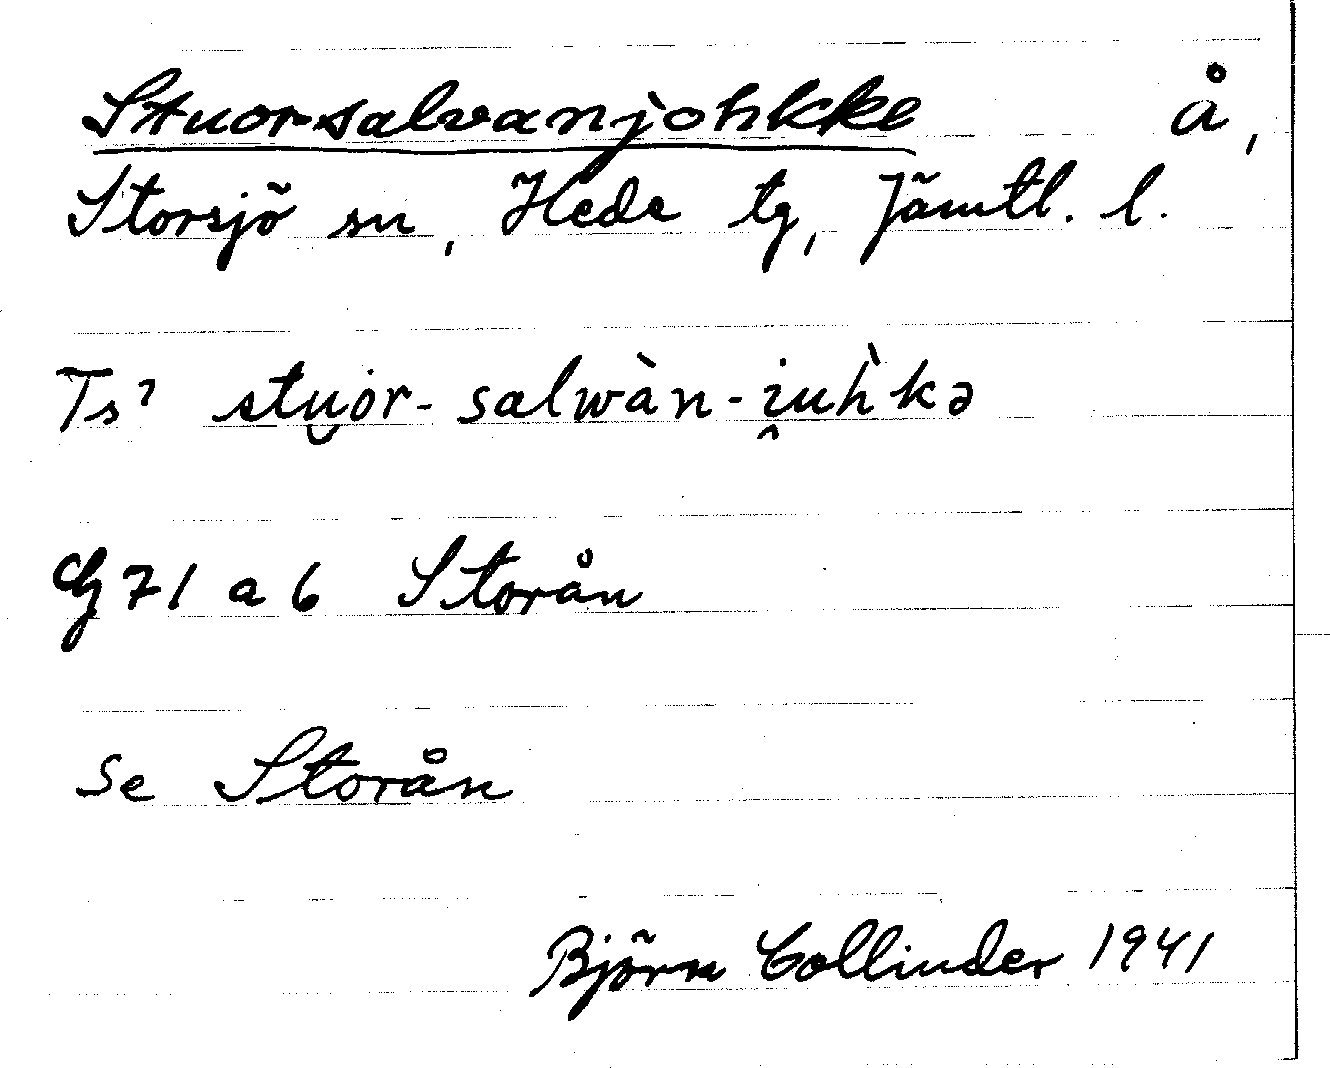 Stuorsalvanjohkke å,
Storsjö sn, Hede tg, Jämtl. l.
Ts² stu̯òr- salwàn - i̯uh̀kə
G 71 a 6 Storån
Se Storån
Björn Collinder 1941